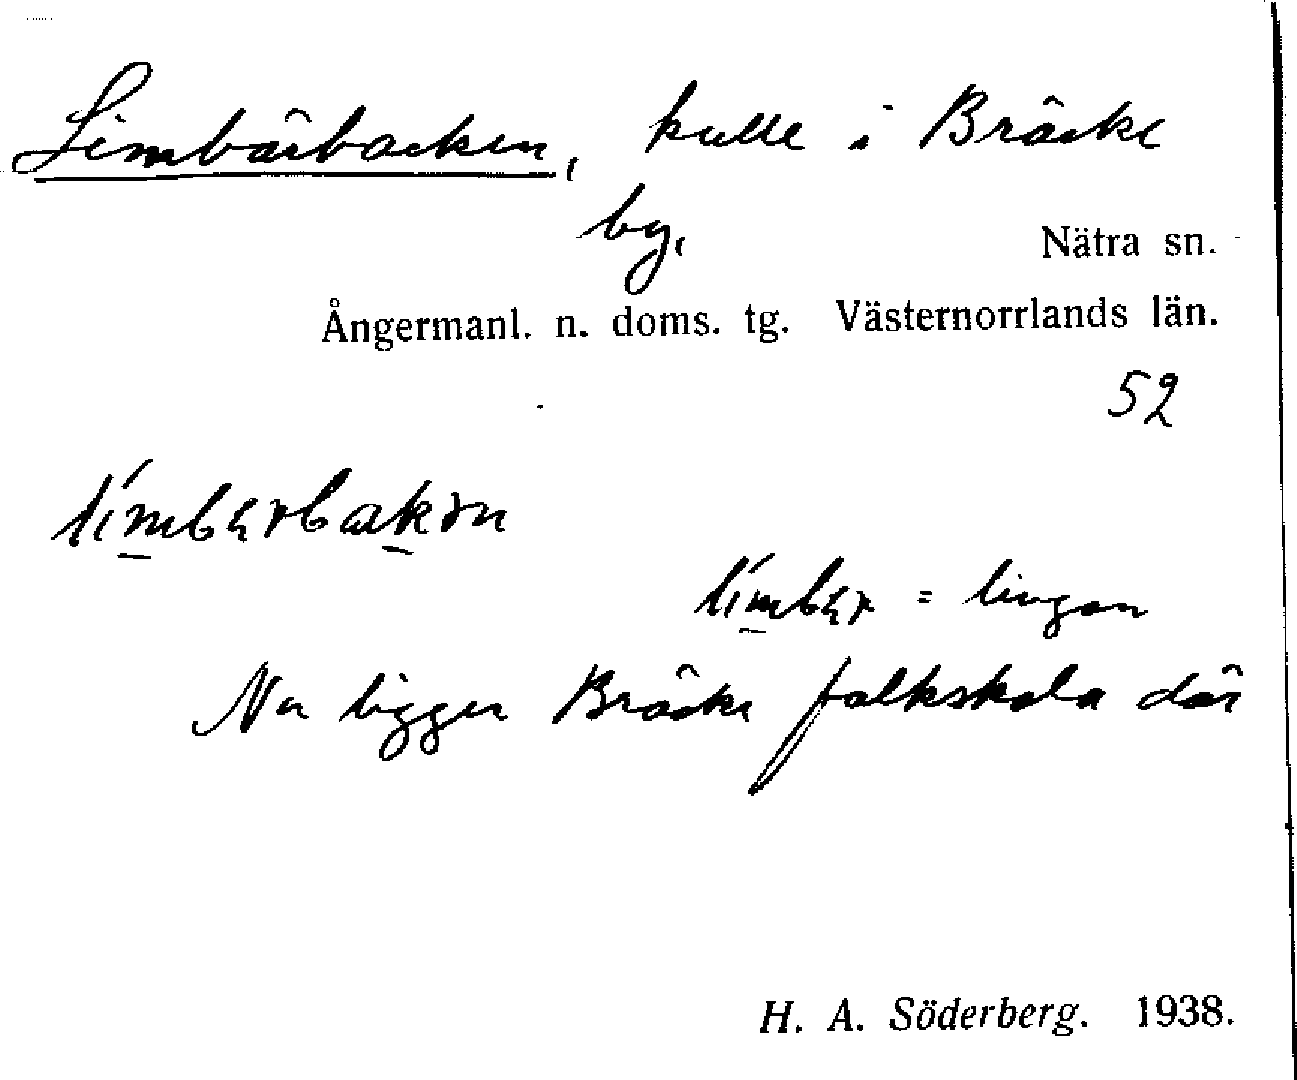 Limbärbacken, kulle i Bräcke
by,
Nätra sn.
Ångermanl. n. doms. tg. Västernorrlands län.
52
límbærbakən
límbær = lingon
Nu ligger Bräcke folkskola där
H. A. Söderberg. 1938.